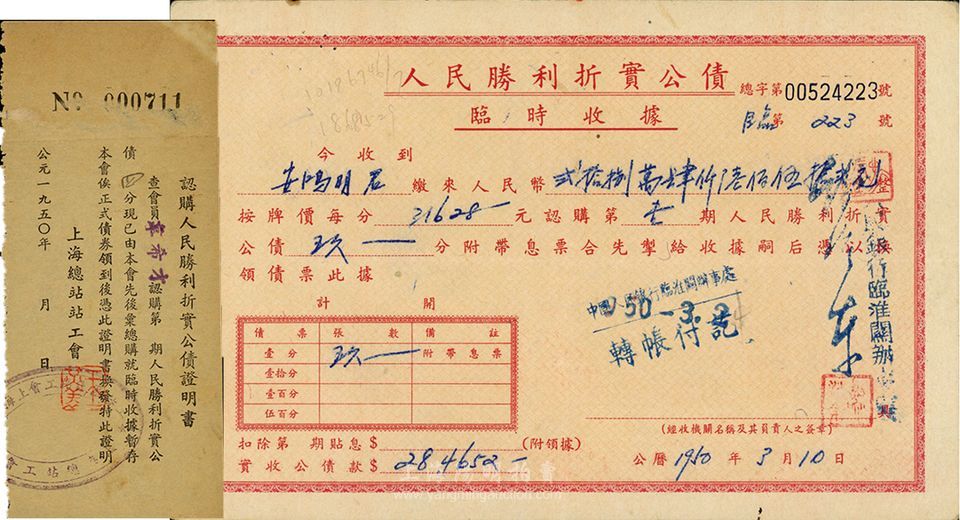 No 000711
認購人民勝利折實公債證明書
查會員 認購第 期人民勝利折實公
債 四 分現已由本會先後彙總購就臨時收據暫存
本會俟正式債券領到後憑此證明書換發特此證明
上海總站站工會
公元一九五〇年 月 日
人民勝利折實公債
臨時收據
總字第00524223號
臨 第 223 號
今收到
明君 繳來人民幣 貳拾捌萬肆仟陸佰伍拾貳
按牌價每分 31628 元認購第 壹 期人民勝利折實
公債 玖 分附帶息票合先掣給收據嗣后憑以換
領債票此據
計開
債票 張數 備註
壹分 玖 附帶息票
壹拾分
壹百分
伍百分
扣除第 期貼息$ (附領據)
實收公債款$ 284652
中國人民銀行臨淮關辦事處
50-3.
轉帳付訖
人民銀行臨淮關辦事處
(經收機關名稱及其負責人之簽章)
公曆 1950 年 3 月 10 日
www.yangmingauction.com